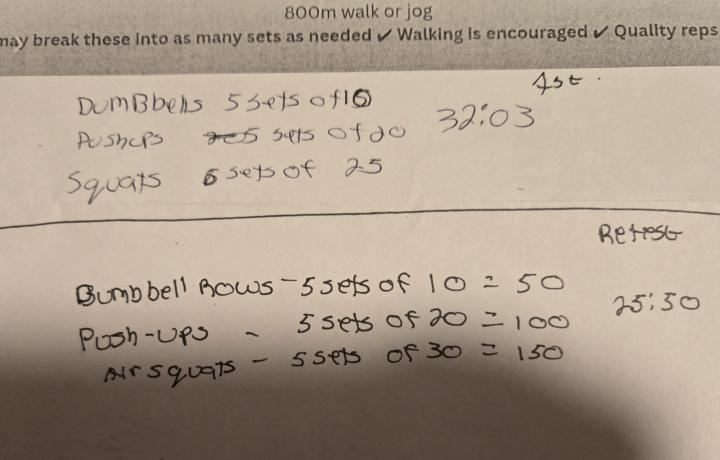 800m walk or jog
may break these into as many sets as needed ✔ Walking is encouraged ✔ Quality reps
1st.
DumBbells 5 sets of 10
32:03
Pushups 5 sets of 20
Squats 6 sets of 25
Retest
Dumbbell Rows - 5 sets of 10 = 50
25:50
Push-ups - 5 sets of 20 = 100
Air squats - 5 sets of 30 = 150